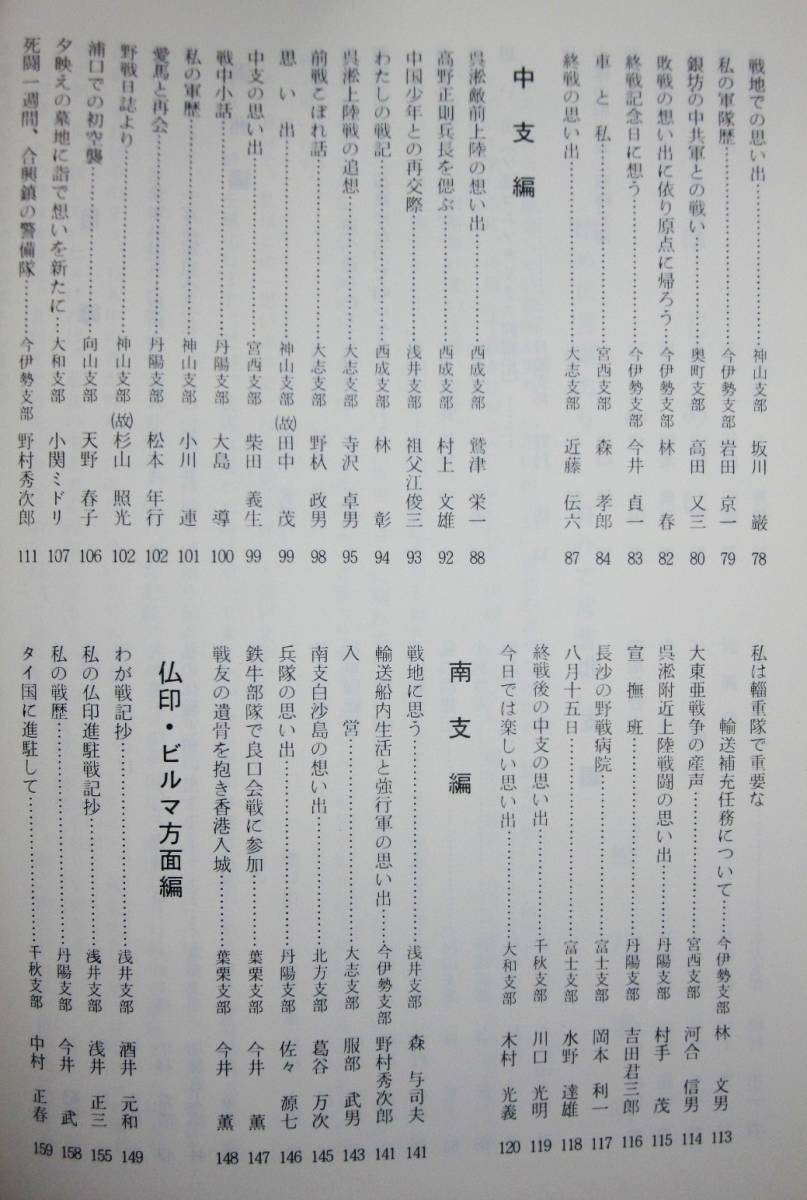 戦地での思い出……………………神山支部 坂川 巌 78
私の軍隊歴……………………今伊勢支部 岩田 京一 79
銀坊の中共軍との戦い……………………奥町支部 高田 又三 80
敗戦の想い出に依り原点に帰ろう……今伊勢支部 林 春 82
終戦記念日に想う……………………今伊勢支部 今井 貞一 83
車と私……………………宮西支部 森 孝郎 84
終戦の思い出……………………大志支部 近藤 伝六 87
中支編
呉淞敵前上陸の想い出……………………西成支部 鷲津 栄一 88
高野正則兵長を偲ぶ……………………西成支部 村上 文雄 92
中国少年との再交際……………………浅井支部 祖父江俊三 93
わたしの戦記……………………西成支部 林 彰 94
呉淞上陸戦の追想……………………大志支部 寺沢 卓男 95
前戦こぼれ話……………………大志支部 野杁 政男 98
思い出……………………神山支部 (故)田中 茂 99
中支の思い出……………………宮西支部 柴田 義生 99
戦中小話……………………丹陽支部 大島 導 100
私の軍歴……………………神山支部 小川 連 101
愛馬と再会……………………丹陽支部 松本 年行 102
野戦日誌より……………………神山支部 (故)杉山 照光 102
浦口での初空襲……………………向山支部 天野 春子 106
夕映えの墓地に詣で想いを新たに……大和支部 小関ミドリ 107
死闘一週間、合興鎮の警備隊………今伊勢支部 野村秀次郎 111
私は輜重隊で重要な
輸送補充任務について……今伊勢支部 林 文男 113
大東亜戦争の産声……………………宮西支部 河合 信男 114
呉淞附近上陸戦闘の思い出…………丹陽支部 村手 茂 115
宣撫班……………………丹陽支部 吉田君三郎 116
長沙の野戦病院……………………富士支部 岡本 利一 117
八月十五日……………………富士支部 水野 達雄 118
終戦後の中支の思い出……………………千秋支部 川口 光明 119
今日では楽しい思い出……………………大和支部 木村 光義 120
南支編
戦地に思う……………………浅井支部 森 与司夫 141
輸送船内生活と強行軍の思い出……今伊勢支部 野村秀次郎 141
入営……………………大志支部 服部 武男 143
南支白沙島の想い出……………………北方支部 葛谷 万次 145
兵隊の思い出……………………丹陽支部 佐々 源七 146
鉄牛部隊で良口会戦に参加…………葉栗支部 今井 薫 147
戦友の遺骨を抱き香港入城…………葉栗支部 今井 薫 148
仏印・ビルマ方面編
わが戦記抄……………………浅井支部 酒井 元和 149
私の仏印進駐戦記抄……………………浅井支部 浅井 正三 155
私の戦歴……………………丹陽支部 今井 武 158
タイ国に進駐して……………………千秋支部 中村 正春 159